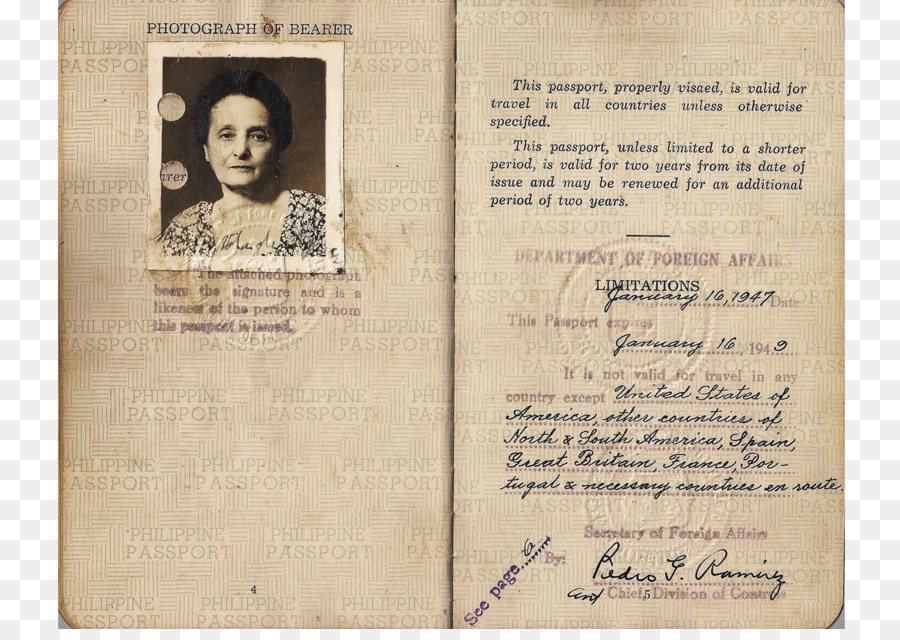 PHOTOGRAPH OF BEARER
arer
The attached photograph
bears the signature and is a
likeness of the person to whom
this passport is issued.
4
This passport, properly visaed, is valid for
travel in all countries unless otherwise
specified.
This passport, unless limited to a shorter
period, is valid for two years from its date of
issue and may be renewed for an additional
period of two years.
DEPARTMENT OF FOREIGN AFFAIRS
LIMITATIONS
January 16, 1947 Date
This Passport expires
January 16, 1949
It is not valid for travel in any
country except United States of
America, other countries of
North & South America, Spain,
Great Britain, France, Por-
tugal & necessary countries en route.
Secretary of Foreign Affairs
By: Pedro G. Ramirez
Chief, Division of Controls
5
See page 6
PHILIPPINE
PASSPORT